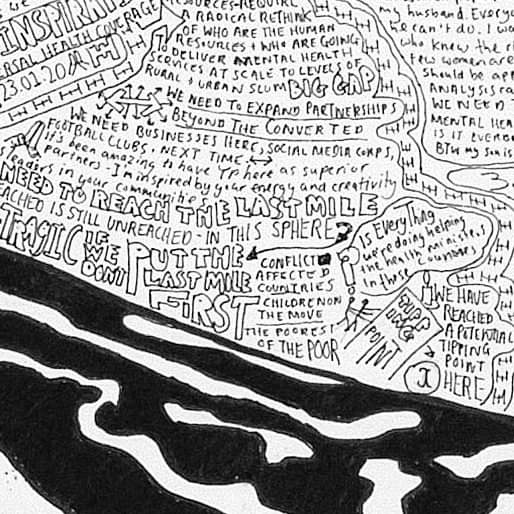 INSPIRATI
ERSAL HEALTH COVERAGE
23.01.20
RESOURCES REQUIRE
A RADICAL RETHINK
OF WHO ARE THE HUMAN
RESOURCES & WHO ARE GOING
TO DELIVER MENTAL HEALTH
SERVICES AT SCALE TO LEVELS OF
RURAL & URBAN SLUM BIG GAP
WE NEED TO EXPAND PARTNERSHIPS
BEYOND THE CONVERTED
WE NEED BUSINESSES HERE, SOCIAL MEDIA CORPS,
FOOTBALL CLUBS. NEXT TIME
it's been amazing to have TP here as superior
partners - I'm inspired by your energy and creativity
leaders in your communities
NEED TO REACH THE LAST MILE
EACHED IS STILL UNREACHED - IN THIS SPHERE
TRAGIC IF WE DON'T PUT THE LAST MILE FIRST
CONFLICT
AFFECTED
COUNTRIES
CHILDREN ON
THE MOVE
THE POOREST
OF THE POOR
IS Everything
we're doing helping
the health ministers
in those countries
TIPPING POINT
WE HAVE
REACHED
A POTENTIAL
TIPPING
POINT
HERE
my husband. Everyo
he can't do. I wa
who knew the
few women are
should be app
ANALYSIS
WE NEED
MENTAL HEA
IS IT EVERYO
BTW my son is